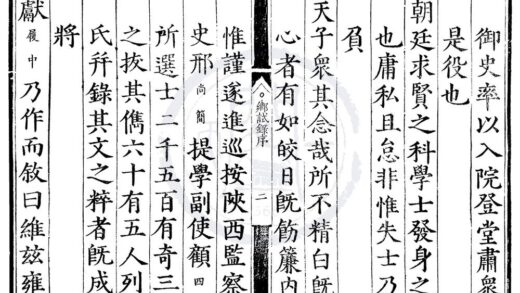 御史率以入院登堂肅衆
是役也
朝廷求賢之科學士發身之
也庸私且怠非惟失士乃
負
天子衆其念哉所不精白厥
心者有如皎日旣飭簾內
鄉試錄序 二
惟謹遂進巡按陝西監察
史邢尚簡提學副使顧四
所選士二千五百有奇三
之拔其儁六十有五人列
氏幷錄其文之粹者旣成
將
獻履中乃作而敘曰維茲雍